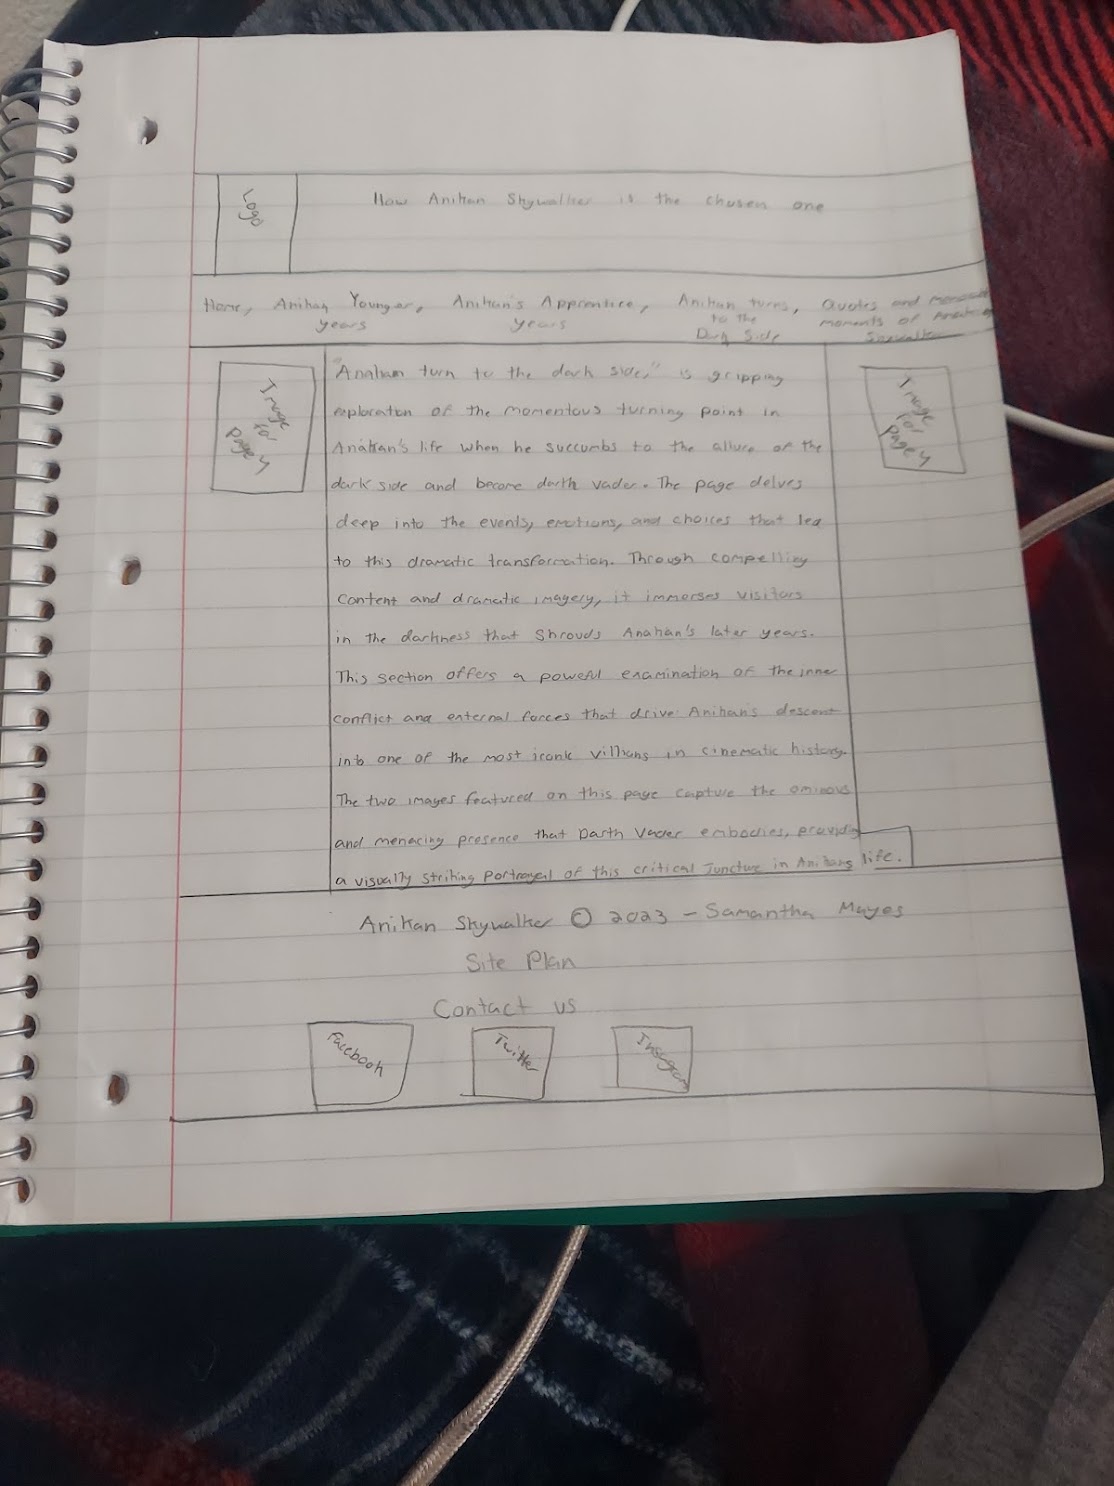 Logo
How Anikan Skywalker is the chosen one
Home, Anikan Younger, Anikan's Apprentice, Anikan turns, Quotes and
years years to the moments of
Dark Side Skywalker
Image
for
page 4
"Anakan turn to the dark side," is gripping
exploration of the momentous turning point in
Anakan's life when he succumbs to the allure of the
dark side and become darth vader. The page delves
deep into the events, emotions, and choices that led
to this dramatic transformation. Through compelling
Content and dramatic imagery, it immerses visitors
in the darkness that Shrouds Anakan's later years.
This section offers a powerful examination of the inner
conflict and external forces that drive Anikan's descent
into one of the most iconic villians in cinematic history.
The two images featured on this page capture the ominous
and menacing presence that Darth Vader embodies, providing
a visually striking portrayal of this critical Juncture in Anikans life.
Image
for
page 4
Anikan Skywalker © 2023 - Samantha Mayes
Site Plan
Contact us
Facebook
Twitter